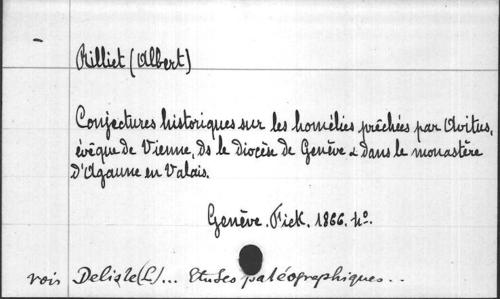 Rilliet (Albert)
Conjectures historiques sur les homélies prêchées par Avitus,
évêque de Vienne, ds le diocèse de Genève & dans le monastère
d'Agaune en Valais.
Genève. Fick. 1866. 4º.
voir Delisle (L)... Etudes paléographiques..